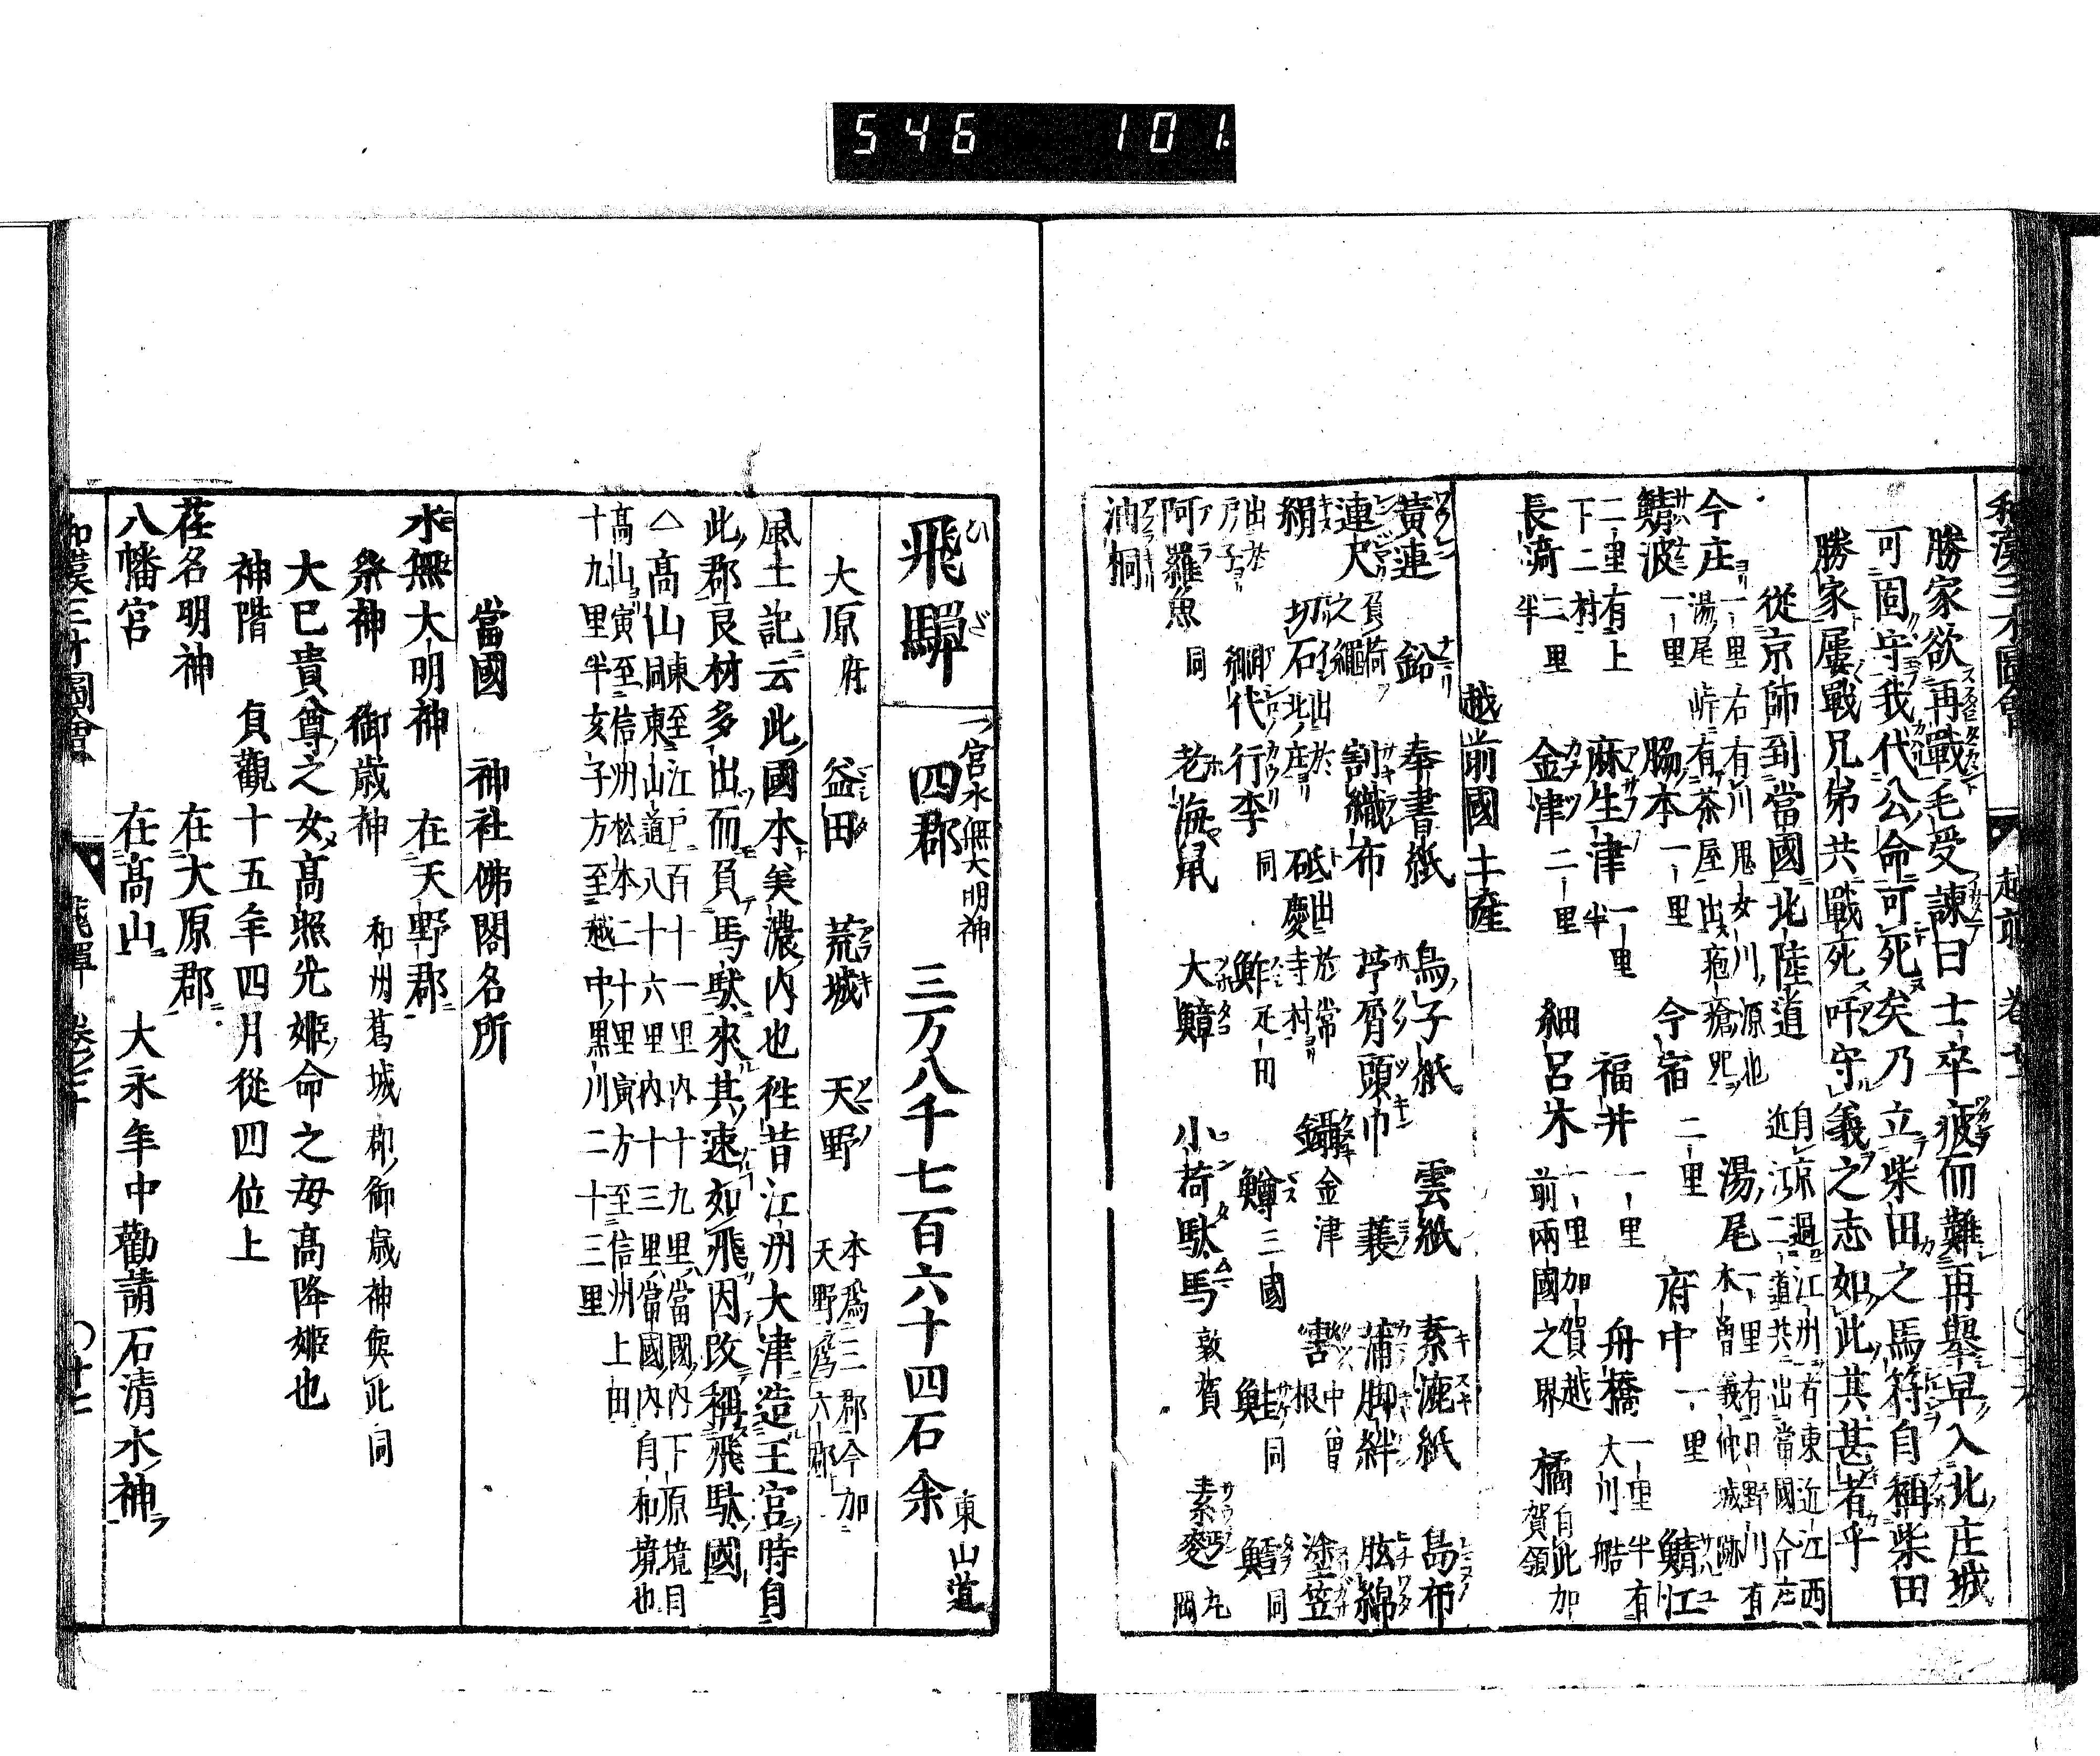 546 101
勝家欲再戰毛受諫曰士卒疲而難再舉早入北庄城
可固守我代公命可死矣乃立柴田之馬符自稱柴田
勝家屢戰兄弟共戰死吁守義之志如此其甚者乎
從京師到當國北陸道
自京過江州有東近江西
近江二道共出當國今庄
今庄 一里右有川鬼女川源也
湯尾峠有茶屋出疱瘡咒
湯尾 一里有日野川有
木曽義仲城跡
鯖波 一里
脇本 一里
今宿 二里
府中 一里
鯖江
二里有上
下二村
麻生津 一里半
福井 一里
舟橋 一里半有
大川船
長﨑 二里半
金津 二里
細呂木 一里加賀越
前兩國之界
橘 自此加
賀領
越前國土産
黄連 鉛 奉書紙 鳥子紙 雲紙 素漉紙 島布
連尺 負荷
之繩
割織布 苧屑頭巾 蓑 蒲脚絆 眩綿
絹 切石 出於
北庄
砥 出於常
慶寺村
鑷 金津
害 中曽
根
塗笠
出於
戸子
網代行李 同
鮓 疋田
鱒 三國
鮭 同
鱈 同
阿羅魚 同
老海鼠 大鱆 小荷駄馬 敦賀
素麪 丸
岡
油桐
飛驒 ひだ
一宮水無大明神
四郡 三万八千七百六十四石余 東山道
大原 府 益田 荒城 天野 本爲三郡今加
天野爲六郡
風土記云此國本美濃内也徃昔江州大津造王宮時自
此郡良材多出而負馬駄來其速如飛因改稱飛駄國
△髙山 東至江戸百十一里内十九里當國内下原境目
同東山道八十六里内十三里當國内自和境也
髙山寅至信洲松本二十里寅方至信洲上田
十九里半亥子方至越中黒川二十三里
當國 神社佛閣名所
水無大明神 在天野郡
祭神 御歳神 和州葛城郡御歳神與此同
大己貴尊之女高照光姫命之母高降姫也
神階 貞觀十五年四月從四位上
荏名明神 在大原郡
八幡宮 在髙山 大永年中勸請石清水神